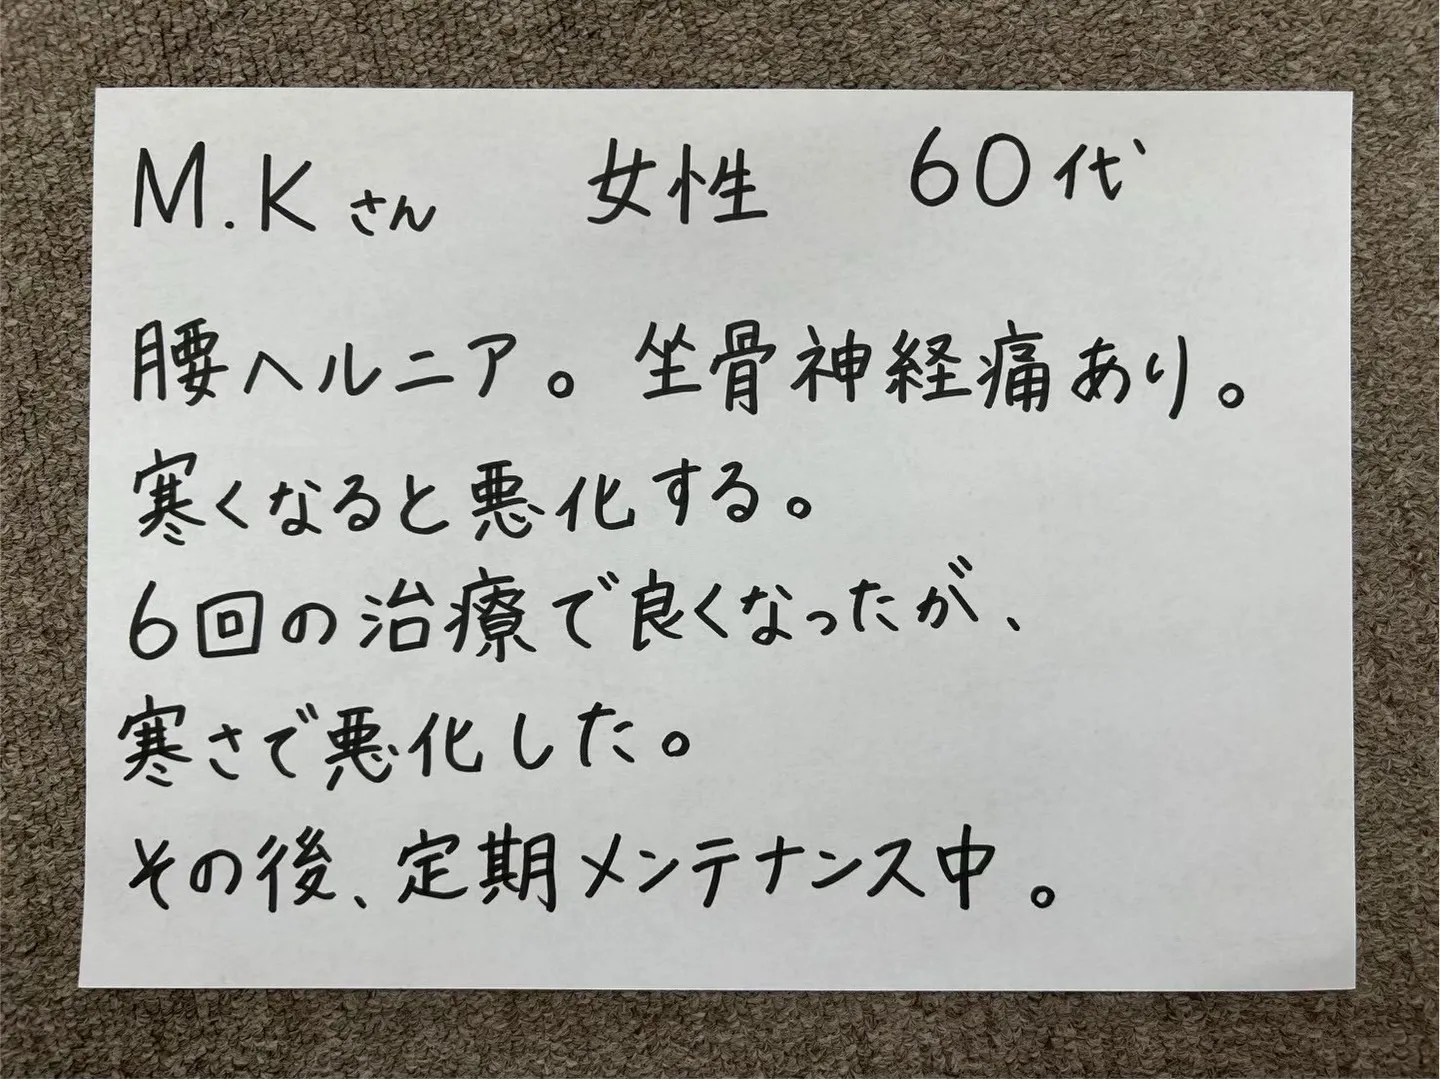 M.Kさん 女性 60代
腰ヘルニア。坐骨神経痛あり。
寒くなると悪化する。
6回の治療で良くなったが、
寒さで悪化した。
その後、定期メンテナンス中。